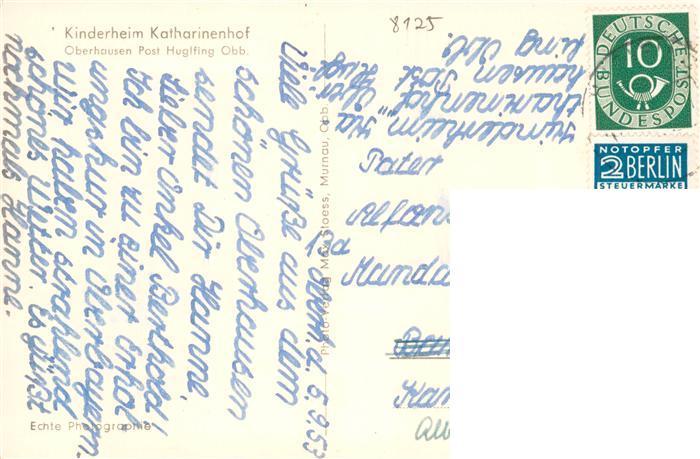 Kinderheim Katharinenhof
Oberhausen Post Huglfing Obb.
8125
DEUTSCHE
BUNDESPOST
10
NOTOPFER
2 BERLIN
STEUERMARKE
Kinderheim "Ka
tharinenhof"
hausen Post
Obb.
Oberh. d. 5.9.53
Viele Grüße aus dem
schönen Oberhausen
sendet Dir Hanne,
lieber Onkel Berthold!
Ich bin zu einer Erhol
ungskur in Oberbayern.
Wir haben strahlend
schönes Wetter. Es grüßt
nochmals Hanne.
Pater
Alfon
Manda
Kan
Photo-Verlag Max Stoess, Murnau, Obb.
Echte Photographie